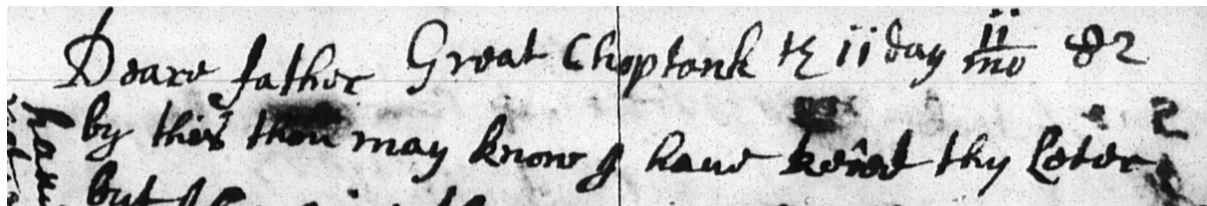 Deare father Great Choptank the ii day ii mo 82
by this thou may know I have reced thy Leter
but I